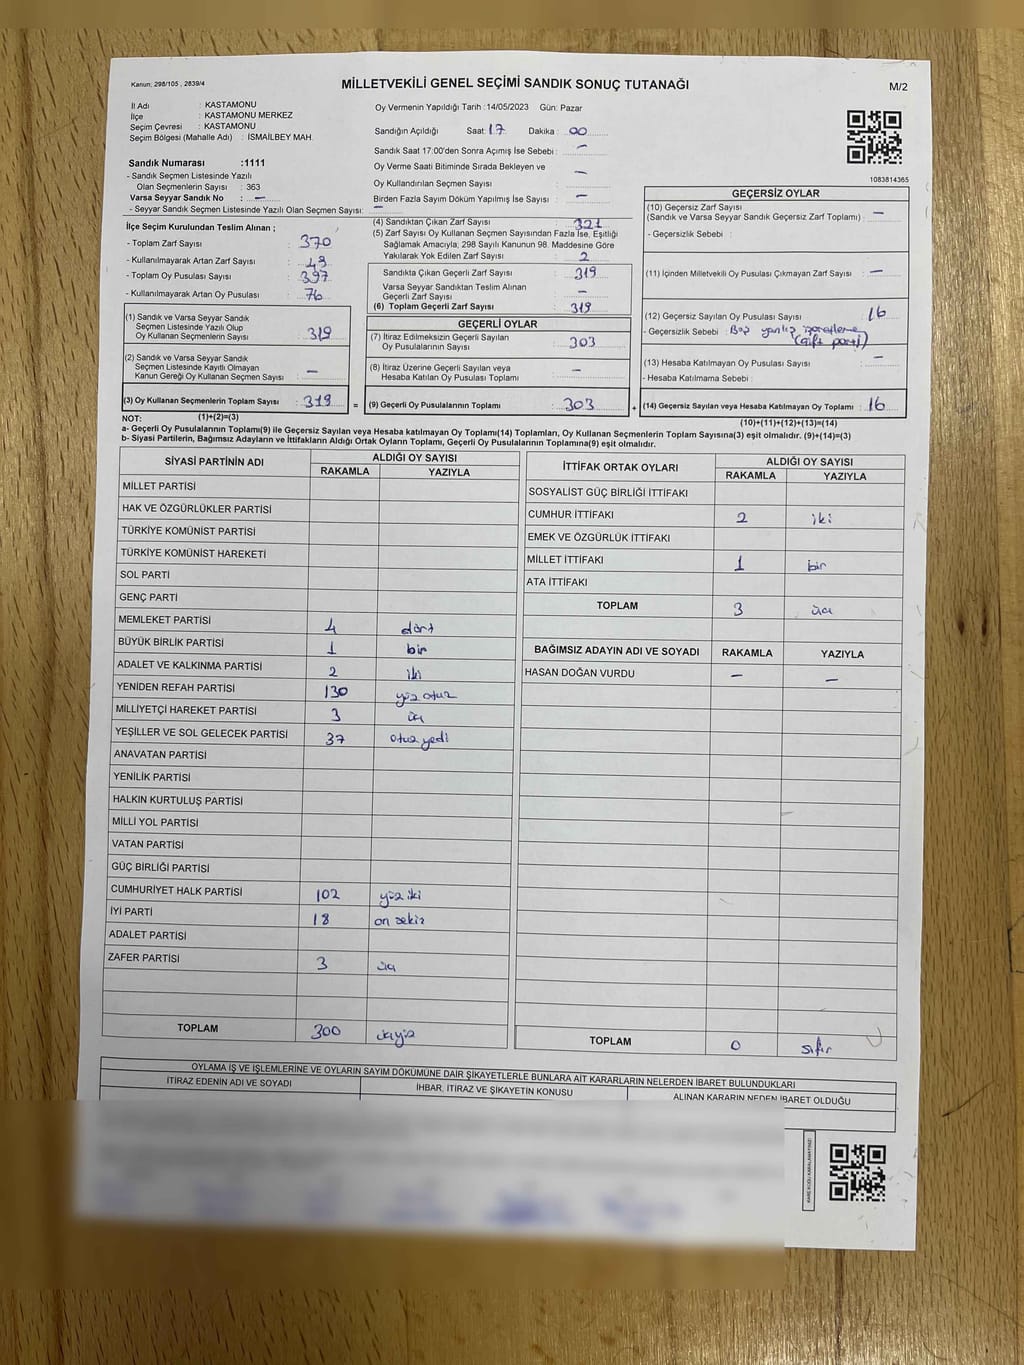 Kanun: 298/105 , 2839/4
MİLLETVEKİLİ GENEL SEÇİMİ SANDIK SONUÇ TUTANAĞI
M/2
İl Adı : KASTAMONU
İlçe : KASTAMONU MERKEZ
Seçim Çevresi : KASTAMONU
Seçim Bölgesi (Mahalle Adı) : İSMAİLBEY MAH.
Sandık Numarası :1111
- Sandık Seçmen Listesinde Yazılı
Olan Seçmenlerin Sayısı : 363
Varsa Seyyar Sandık No : –
- Seyyar Sandık Seçmen Listesinde Yazılı Olan Seçmen Sayısı: –
İlçe Seçim Kurulundan Teslim Alınan ;
- Toplam Zarf Sayısı : 370
- Kullanılmayarak Artan Zarf Sayısı : 49
- Toplam Oy Pusulası Sayısı : 397
- Kullanılmayarak Artan Oy Pusulası : 76
(1) Sandık ve Varsa Seyyar Sandık
Seçmen Listesinde Yazılı Olup
Oy Kullanan Seçmenlerin Sayısı : 319
(2) Sandık ve Varsa Seyyar Sandık
Seçmen Listesinde Kayıtlı Olmayan
Kanun Gereği Oy Kullanan Seçmen Sayısı : –
(3) Oy Kullanan Seçmenlerin Toplam Sayısı : 319 =
(1)+(2)=(3)
Oy Vermenin Yapıldığı Tarih :14/05/2023 Gün: Pazar
Sandığın Açıldığı Saat: 17 Dakika : 00
Sandık Saat 17:00'den Sonra Açımış İse Sebebi : –
Oy Verme Saati Bitiminde Sırada Bekleyen ve
Oy Kullandırılan Seçmen Sayısı : –
Birden Fazla Sayım Döküm Yapılmış İse Sayısı : –
(4) Sandıktan Çıkan Zarf Sayısı : 321
(5) Zarf Sayısı Oy Kullanan Seçmen Sayısından Fazla İse, Eşitliği
Sağlamak Amacıyla; 298 Sayılı Kanunun 98. Maddesine Göre
Yakılarak Yok Edilen Zarf Sayısı : 2
Sandıkta Çıkan Geçerli Zarf Sayısı : 319
Varsa Seyyar Sandıktan Teslim Alınan
Geçerli Zarf Sayısı : –
(6) Toplam Geçerli Zarf Sayısı : 319
GEÇERLİ OYLAR
(7) İtiraz Edilmeksizin Geçerli Sayılan
Oy Pusulalarının Sayısı : 303
(8) İtiraz Üzerine Geçerli Sayılan veya
Hesaba Katılan Oy Pusulası Toplamı : –
(9) Geçerli Oy Pusulalarının Toplamı : 303 +
1083814365
GEÇERSİZ OYLAR
(10) Geçersiz Zarf Sayısı
(Sandık ve Varsa Seyyar Sandık Geçersiz Zarf Toplamı) : –
- Geçersizlik Sebebi :
(11) İçinden Milletvekili Oy Pusulası Çıkmayan Zarf Sayısı : –
(12) Geçersiz Sayılan Oy Pusulası Sayısı : 16
- Geçersizlik Sebebi : Boş yanlış işaretleme
(Çift parti)
(13) Hesaba Katılmayan Oy Pusulası Sayısı : –
- Hesaba Katılmama Sebebi :
(14) Geçersiz Sayılan veya Hesaba Katılmayan Oy Toplamı : 16
(10)+(11)+(12)+(13)=(14)
NOT:
a- Geçerli Oy Pusulalarının Toplamı(9) ile Geçersiz Sayılan veya Hesaba katılmayan Oy Toplamı(14) Toplamları, Oy Kullanan Seçmenlerin Toplam Sayısına(3) eşit olmalıdır. (9)+(14)=(3)
b- Siyasi Partilerin, Bağımsız Adayların ve İttifakların Aldığı Ortak Oyların Toplamı, Geçerli Oy Pusulalarının Toplamına(9) eşit olmalıdır.
SİYASİ PARTİNİN ADI ALDIĞI OY SAYISI
RAKAMLA YAZIYLA
MİLLET PARTİSİ
HAK VE ÖZGÜRLÜKLER PARTİSİ
TÜRKİYE KOMÜNİST PARTİSİ
TÜRKİYE KOMÜNİST HAREKETİ
SOL PARTİ
GENÇ PARTİ
MEMLEKET PARTİSİ 4 dört
BÜYÜK BİRLİK PARTİSİ 1 bir
ADALET VE KALKINMA PARTİSİ 2 iki
YENİDEN REFAH PARTİSİ 130 yüz otuz
MİLLİYETÇİ HAREKET PARTİSİ 3 üç
YEŞİLLER VE SOL GELECEK PARTİSİ 37 otuz yedi
ANAVATAN PARTİSİ
YENİLİK PARTİSİ
HALKIN KURTULUŞ PARTİSİ
MİLLİ YOL PARTİSİ
VATAN PARTİSİ
GÜÇ BİRLİĞİ PARTİSİ
CUMHURİYET HALK PARTİSİ 102 yüz iki
İYİ PARTİ 18 on sekiz
ADALET PARTİSİ
ZAFER PARTİSİ 3 üç
TOPLAM 300 üçyüz
İTTİFAK ORTAK OYLARI ALDIĞI OY SAYISI
RAKAMLA YAZIYLA
SOSYALİST GÜÇ BİRLİĞİ İTTİFAKI
CUMHUR İTTİFAKI 2 iki
EMEK VE ÖZGÜRLÜK İTTİFAKI
MİLLET İTTİFAKI 1 bir
ATA İTTİFAKI
TOPLAM 3 üç
BAĞIMSIZ ADAYIN ADI VE SOYADI RAKAMLA YAZIYLA
HASAN DOĞAN VURDU – –
TOPLAM 0 sıfır
OYLAMA İŞ VE İŞLEMLERİNE VE OYLARIN SAYIM DÖKÜMÜNE DAİR ŞİKAYETLERLE BUNLARA AİT KARARLARIN NELERDEN İBARET BULUNDUKLARI
İTİRAZ EDENİN ADI VE SOYADI İHBAR, İTİRAZ VE ŞİKAYETİN KONUSU ALINAN KARARIN NEDEN İBARET OLDUĞU